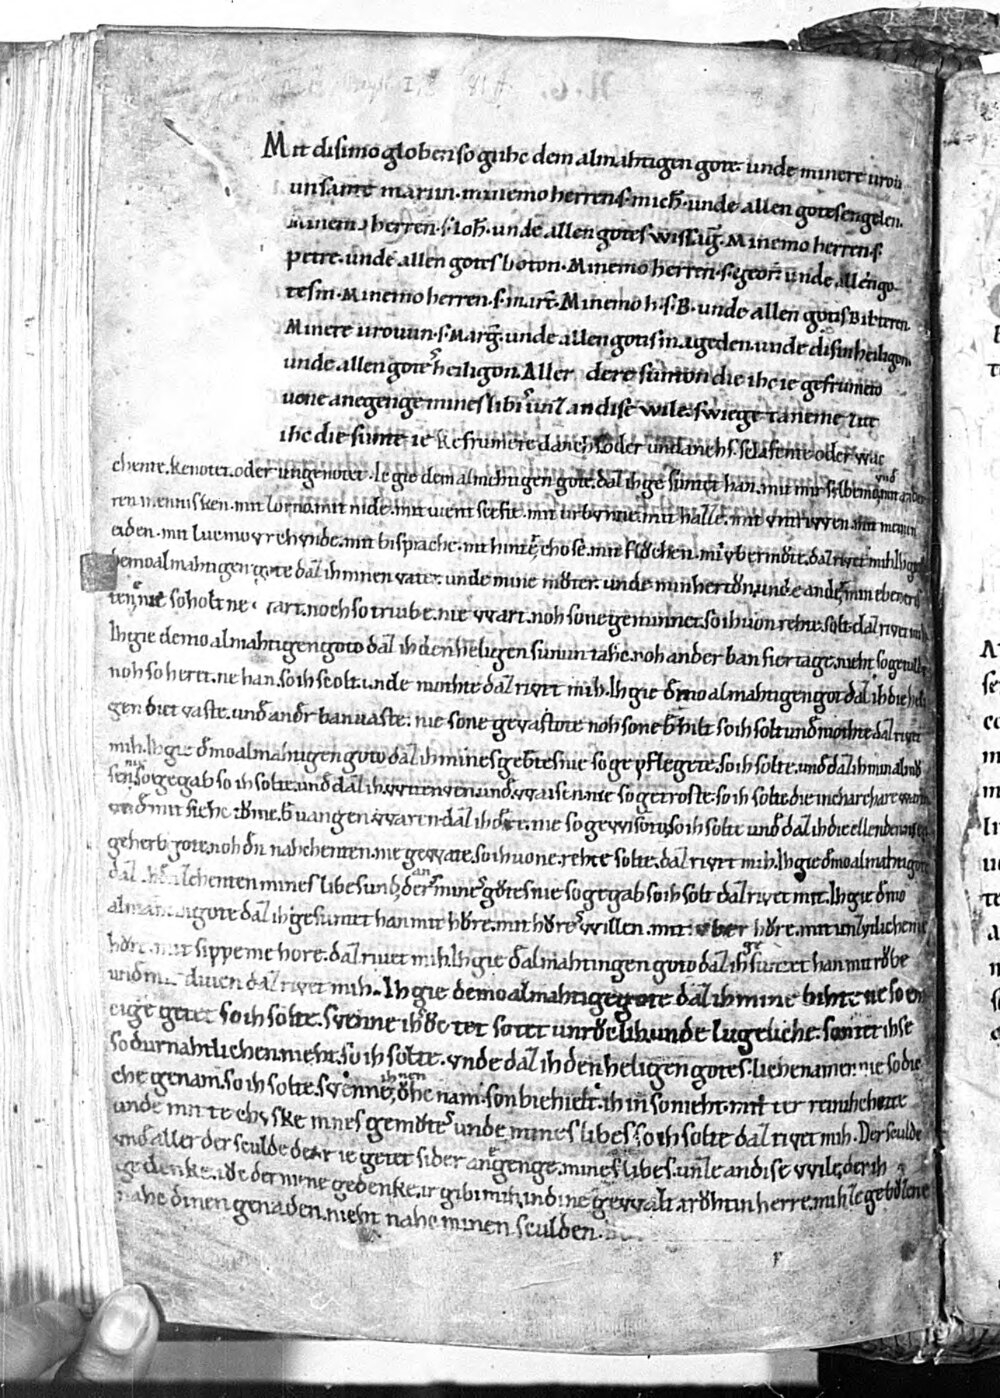 Mit disimo globen so gihe dem almahtigen gote. unde minere urou
un sante mariun. minemo herren. s. mich. unde allen gotes engelen.
Minemo herren. s. ioh. unde allen gotes wissag. Minemo herren. s.
petre. unde allen gotes boton. Minemo herren. s. geor. unde allen go
tes m. Minemo herren. s. mart. Minemo h. s. B. unde allen gotis Bihteren
Minere urouun. s. Marg. unde allen gotis mageden. unde disin heiligon.
unde allen gotes heiligon. Aller dere sunton die ihc ie gefrumeto
uone anegenge mines libis unz an dise wile. swiege taneme zit
ihc die sunte ie kefrumete danchs oder undanchs. slafente oder wac
chente. kenotet. oder ungenotet. Ie gie dem almehtigen gote. daz ih gesuntet han. mit mir selbemo und mit ande
ren mennisken. mit zorno. mit nide. mit vientscefte. mit urbunne. mit hazze. mit untriwen. mit meinen
eiden. mit luemo urchunde. mit bisprache. mit hinterchose. mit fluchen. mit ubermuote. daz riwet mih. Ih gie
demo almahtigen gote daz ih minen vater. unde mine muoter. unde minherton. unde andere min ebencris
ten nie so holt ne wart. noch so triube. nie wart. noh sone geminnet. so ih uon rehte. solt. daz riwet mih
Ih gie demo almahtigen goto daz ih den heiligen sunun tahc. noh ander ban fiertage. nieht so geuulte
noh so heret. ne han. so ih scolt. unde mohte daz riwet mih. Ih gie demo almahtigen got daz ih die heili
gen diet vaste. und ander banuaste. nie sone gevastote noh sone behilt so ih solt und mohte daz riwet
mih. Ih gie demo almahtigen goto daz ih mines gebtes nie so ge pflegete. so ih solte. und daz ih min almuo
sen nie so gegab so ih solte. und daz ih wittewen. und waisen. nie so getroste. so ih solte. die in charchare waren
und mit siehe tuome bevangen waren. daz ih die. nie so gewisota. so ih solte und daz ih die ellenden nie so
geherbgote. noh den nahchenten. nie gewate. so ih uone rehte solte. daz riwet mih. Ih gie demo almahtigote
daz ih den zehenten mines libes und ander mines guotes nie so gegab so ih solt daz riwet mit. Ih gie demo
almahtigote daz ih gesuntet han mit huore. mit huores willen. mit uber huore. mit unzuilicheme
huore. mit sippeme hore. daz riwet mih. Ih gie dem almahtingen goto daz ih gesuntet han mit roube
und mit diuen daz riwet mih. Ih gie demo almahtigegote daz ih mine bihte ne so en
eige getet so ih solte. swenne ihs tet so tet unruolih unde lugeliche. son tet ih se
so durnahtlichen nieht. so ih solte. unde daz ih den heligen gotes. lichenamen nie so die
che genam. so ih solte. swenne ih inen ouhc nam. son biehielt. ih in so nieht. mit ter reinichheite
unde mit te chuske mines gemuotes unde mines libes so ih solte daz riwet mih. Der sculde
und aller der sculde der ie getet sider anegenge. mines libes. unze an dise wile. der ih
gedenke. ioh der ih ne gedenke. ir gibi mih in dine gewalt. truohtin herre. mih ze gebuozene
nahc dinen genaden. nieht nahc minen sculden.